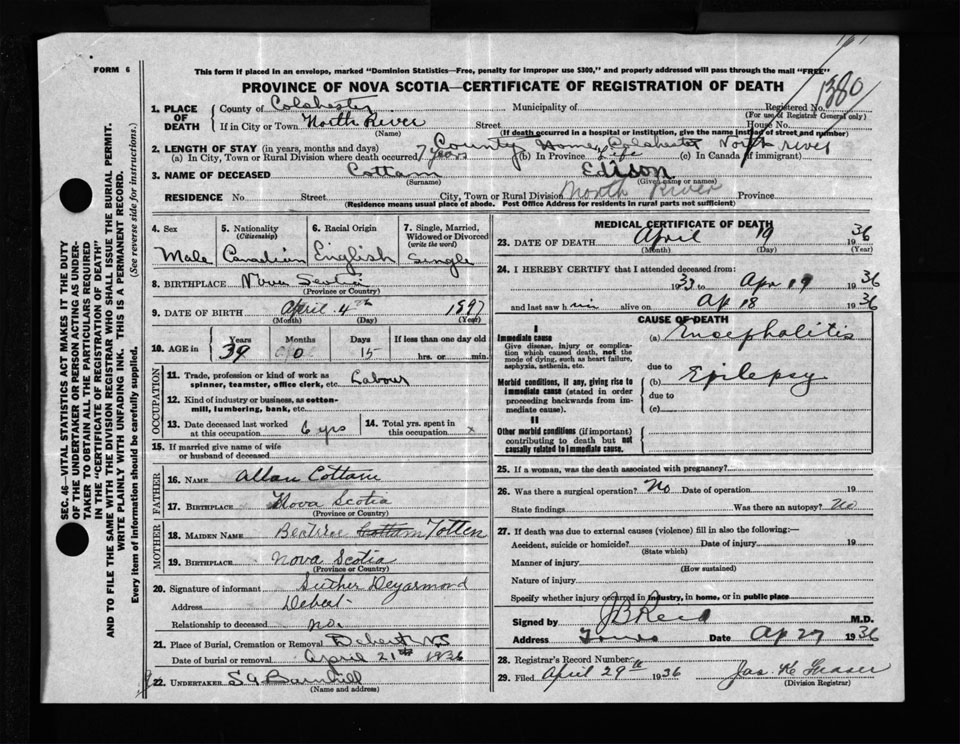 FORM 6
This form if placed in an envelope, marked "Dominion Statistics—Free, penalty for improper use $300," and properly addressed will pass through the mail "FREE"
PROVINCE OF NOVA SCOTIA—CERTIFICATE OF REGISTRATION OF DEATH
1380
1. PLACE OF DEATH County of Colchester Municipality of Registered No.
(For use of Registrar General only)
If in City or Town North River Street House No.
(Name) (If death occurred in a hospital or institution, give the name instead of street and number)
County Home, Colchester North River
2. LENGTH OF STAY (in years, months and days)
(a) In City, Town or Rural Division where death occurred 7 years (b) In Province Life (c) In Canada (if immigrant)
3. NAME OF DECEASED Cottam Edison
(Surname) (Given name or names)
RESIDENCE No Street City, Town or Rural Division North River Province
(Residence means usual place of abode. Post Office Address for residents in rural parts not sufficient)
4. Sex Male
5. Nationality (Citizenship) Canadian
6. Racial Origin English
7. Single, Married, Widowed or Divorced (write the word) Single
8. BIRTHPLACE Nova Scotia
(Province or Country)
9. DATE OF BIRTH April 4th 1897
(Month) (Day) (Year)
10. AGE in Years 39 Months 0 Days 15 If less than one day old hrs. or min.
OCCUPATION
11. Trade, profession or kind of work as spinner, teamster, office clerk, etc. Labour
12. Kind of industry or business, as cotton-mill, lumbering, bank, etc.
13. Date deceased last worked at this occupation 6 yrs
14. Total yrs. spent in this occupation x
15. If married give name of wife or husband of deceased
FATHER
16. NAME Allan Cottam
17. BIRTHPLACE Nova Scotia
(Province or Country)
MOTHER
18. MAIDEN NAME Beatrice Cottam Totten
19. BIRTHPLACE Nova Scotia
(Province or Country)
20. Signature of informant Luther Deyarmond
Address Debert
Relationship to deceased no.
21. Place of Burial, Cremation or Removal Debert N.S
Date of burial or removal April 21st 1936
22. UNDERTAKER S G Barnhill
(Name and address)
MEDICAL CERTIFICATE OF DEATH
23. DATE OF DEATH April 19 1936
(Month) (Day) (Year)
24. I HEREBY CERTIFY that I attended deceased from:
1933 to Apr 19 1936
and last saw him alive on Ap 18 1936
CAUSE OF DEATH
I
Immediate cause (a) Encephalitis
Give disease, injury or complication which caused death, not the mode of dying, such as heart failure, asphyxia, asthenia, etc.
due to
Morbid conditions, if any, giving rise to immediate cause (stated in order proceeding backwards from immediate cause).
(b) Epilepsy
due to
(c)
II
Other morbid conditions (if important) contributing to death but not causally related to immediate cause.
25. If a woman, was the death associated with pregnancy?
26. Was there a surgical operation? No Date of operation 19
State findings Was there an autopsy? No
27. If death was due to external causes (violence) fill in also the following:—
Accident, suicide or homicide? Date of injury 19
(State which)
Manner of injury
(How sustained)
Nature of injury
Specify whether injury occurred in industry, in home, or in public place
Signed by J B Reid M.D.
Address Truro Date Ap 27 1936
28. Registrar's Record Number
29. Filed April 29th 1936 Jas. K Fraser
(Division Registrar)
SEC. 46—VITAL STATISTICS ACT MAKES IT THE DUTY
OF THE UNDERTAKER OR PERSON ACTING AS UNDERTAKER TO OBTAIN ALL THE PARTICULARS REQUIRED
IN THE "CERTIFICATE OF REGISTRATION OF DEATH"
AND TO FILE THE SAME WITH THE DIVISION REGISTRAR WHO SHALL ISSUE THE BURIAL PERMIT.
WRITE PLAINLY WITH UNFADING INK. THIS IS A PERMANENT RECORD.
Every item of information should be carefully supplied. (See reverse side for instructions.)